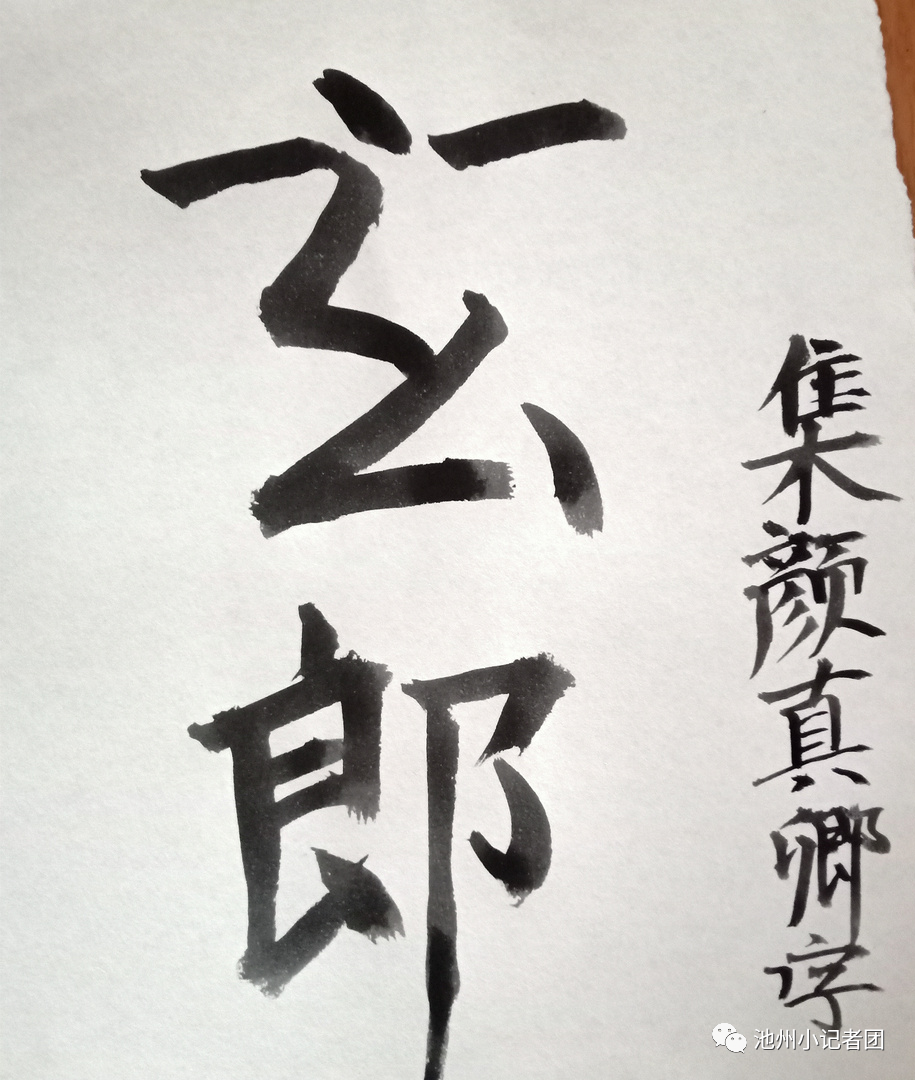 玄郎
集颜真卿字
池州小记者团